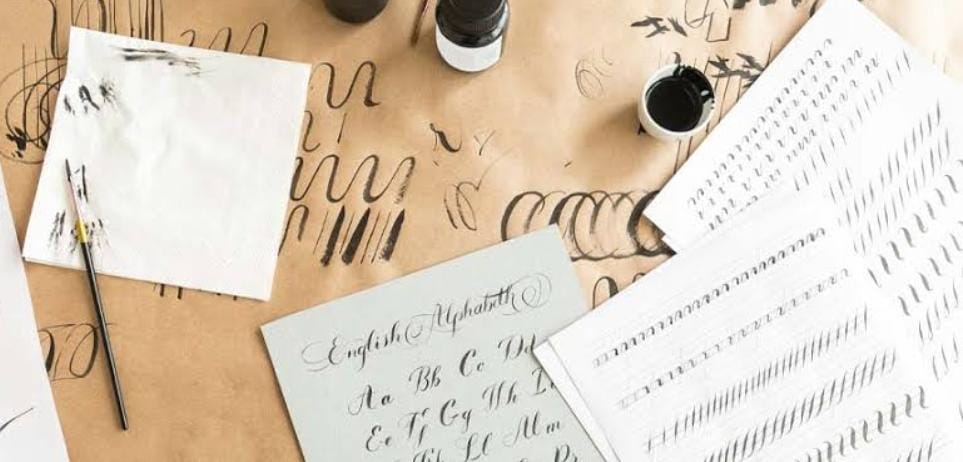 English Alphabeth
Aa Bb Cc Dd
Ee Ff Gg Hh I
Ll Mm